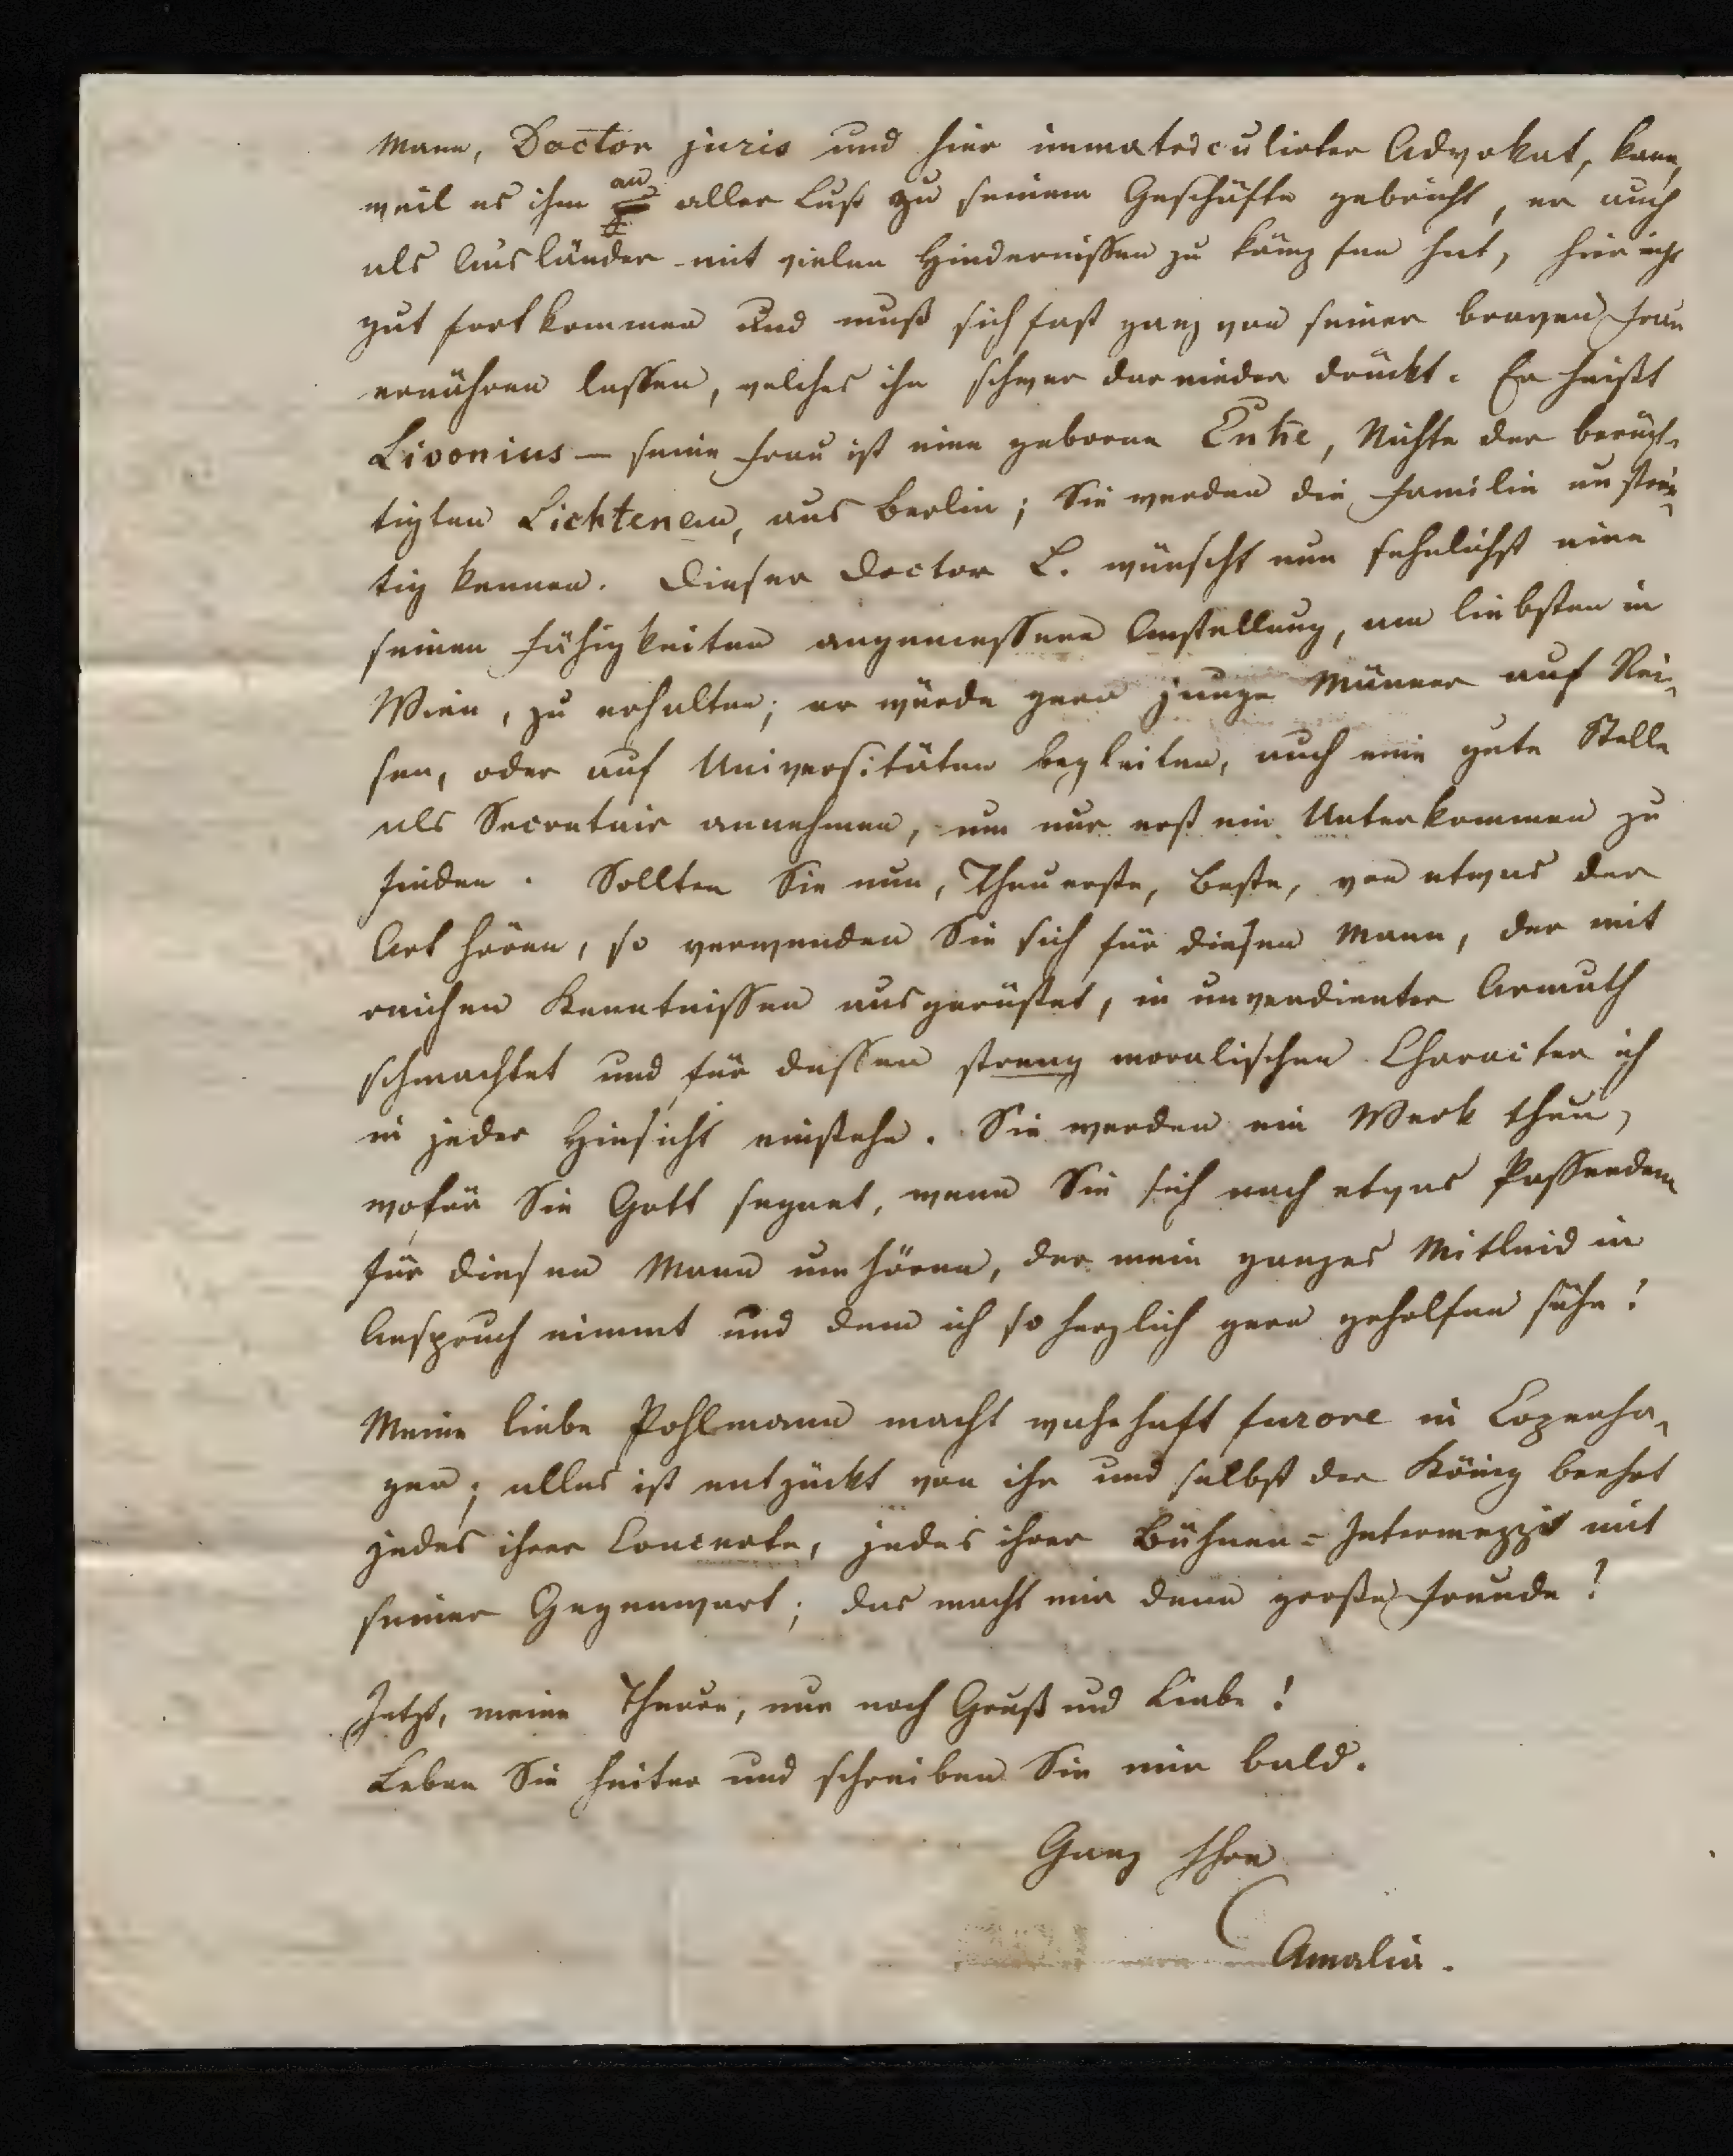 Mann, Doctor juris und hier immatriculirter Advokat, kann,
weil es ihm an aller Lust zu seinem Geschäfte gebricht, er auch
als Ausländer mit vielen Hindernissen zu kämpfen hat, hier nicht
gut fortkommen und muß sich fast ganz von seiner braven Frau
ernähren lassen, welches ihn schwer darnieder drückt. Er heißt
Livonius — seine Frau ist eine geborne Enke, Nichte der berüch-
tigten Lichtenau, aus Berlin; Sie werden die Familie unstrei-
tig kennen. Dieser Doctor L. wünscht nun sehnlichst eine
seinen Fähigkeiten angemessene Anstellung, am liebsten in
Wien, zu erhalten; er würde gern junge Männer auf Rei-
sen, oder auf Universitäten begleiten, auch eine gute Stelle
als Secretair annehmen, um nur erst ein Unterkommen zu
finden. Sollten Sie nun, Theuerste, Beste, von etwas der
Art hören, so verwenden Sie sich für diesen Mann, der mit
reichen Kenntnissen ausgerüstet, in unverdienter Armuth
schmachtet und für dessen streng moralischen Character ich
in jeder Hinsicht einstehe. Sie werden ein Werk thun,
wofür Sie Gott segnet, wenn Sie sich nach etwas Passendem
für diesen Mann umhören, der mein ganzes Mitleid in
Anspruch nimmt und dem ich so herzlich gern geholfen sähe!
Meine liebe Pohlmann macht wahrhaft furore in Copenha-
gen; alles ist entzückt von ihr und selbst der König beehrt
jedes ihrer Concerte, jedes ihrer Bühnen-Intermezzis mit
seiner Gegenwart; das macht mir denn große Freude!
Jetzt, meine Theure, nur noch Gruß und Liebe!
Leben Sie heiter und schreiben Sie mir bald.
Ganz Ihre
Amalia.